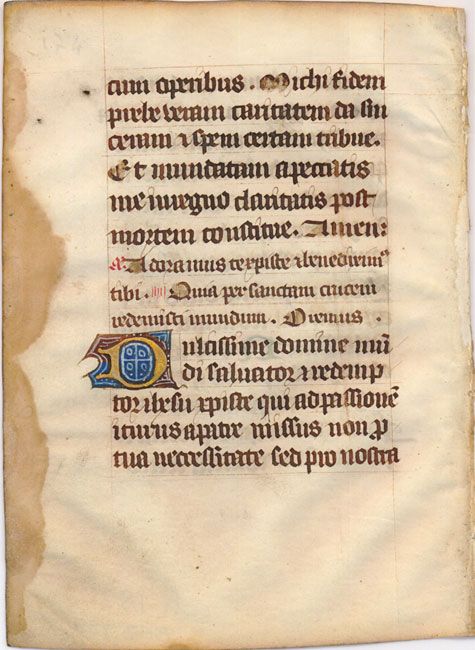 cum operibus. Michi fidem
prebe veram caritatem da sin
ceram ⁊ spem certam tribue.
Et mundatam a peccatis
me in regno claritatis post
mortem constitue. Amen:
Adoramus te xpiste ⁊ benedicimꝰ
tibi. Quia per sanctam crucem
redemisti mundum. Oremus.
Dulcissime domine mū
di salvator ⁊ redemp
tor ihesu xpiste qui ad passionē
iturus a patre missus non p̄
tua necessitate sed pro nostra